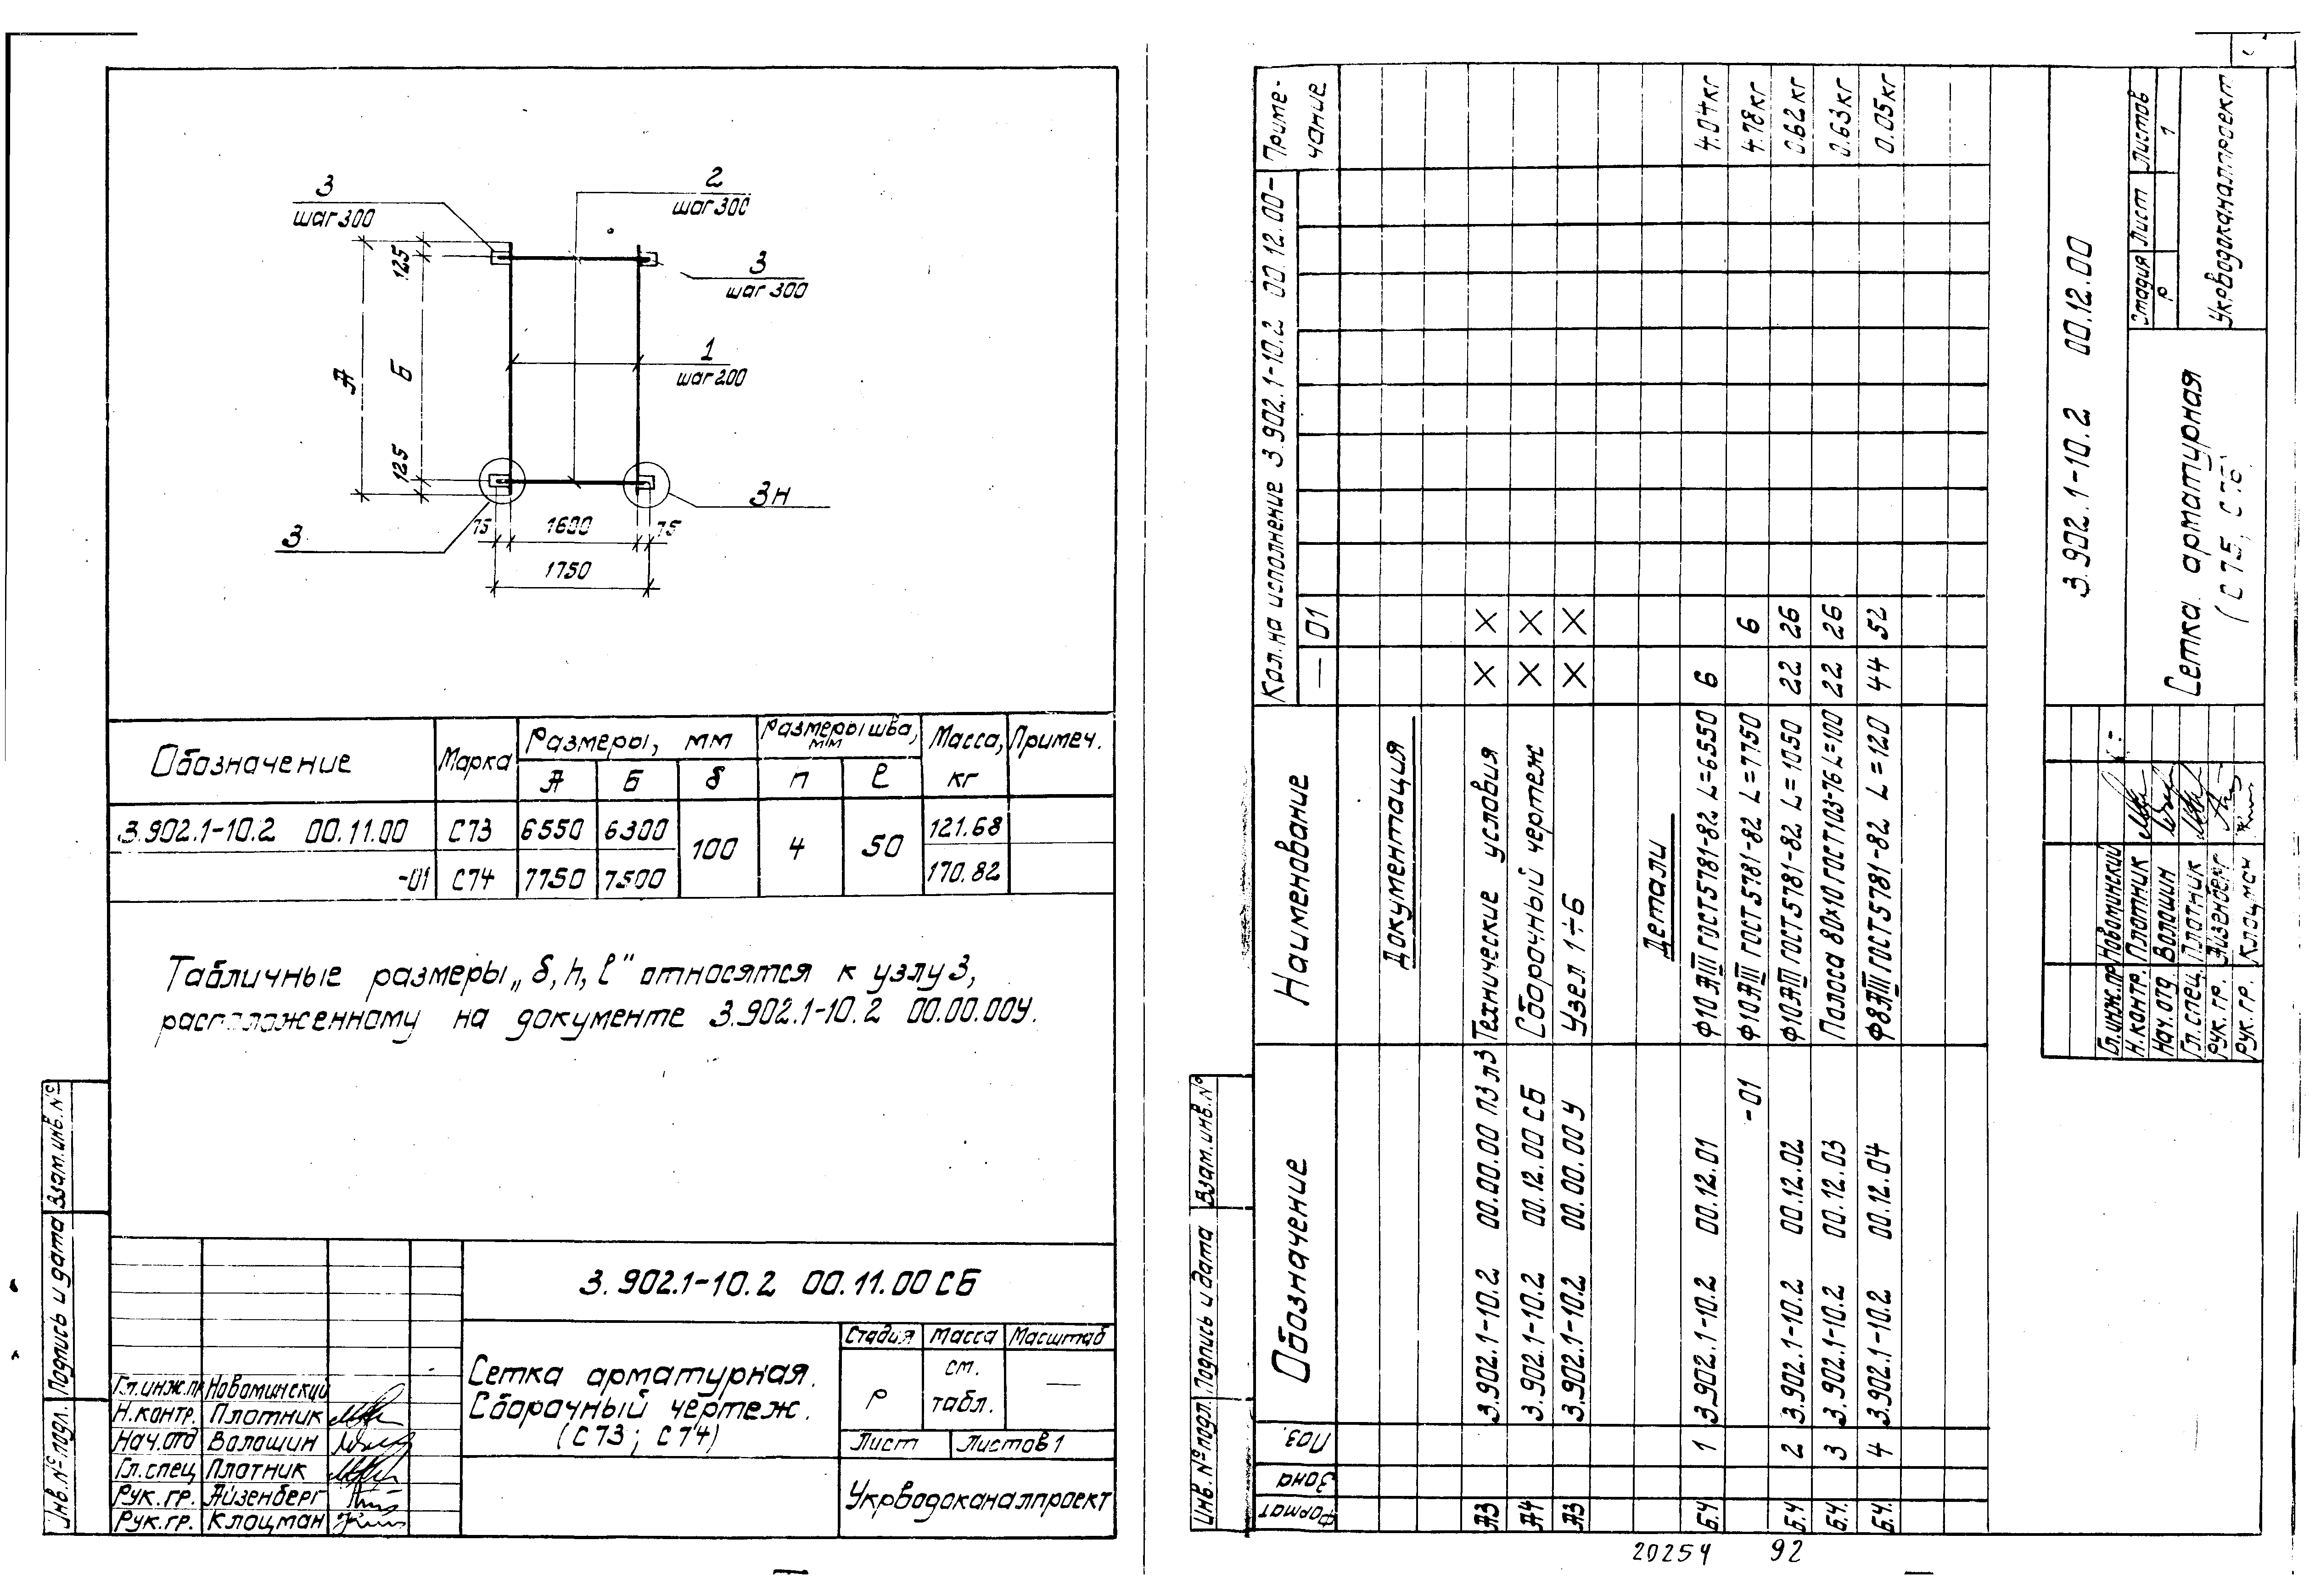 3
шаг 300
2
шаг 300
3
шаг 300
1
шаг 200
А
125
Б
125
3
3н
75
1600
75
1750
Обозначение Марка Размеры, мм Размеры шва, мм Масса, кг Примеч.
А Б δ п ℓ
3.902.1-10.2 00.11.00 С73 6550 6300 100 4 50 121.68
-01 С74 7750 7500 170.82
Табличные размеры „δ, h, ℓ" относятся к узлу 3,
расположенному на документе 3.902.1-10.2 00.00.00У.
Взам.инв.№
Подпись и дата
Инв.№ подл.
3.902.1-10.2 00.11.00 СБ
Сетка арматурная.
Сборочный чертеж.
(С73; С74)
Стадия Масса Масштаб
Р см. табл. —
Лист Листов 1
Укрводоканалпроект
Гл.инж.пр Новоминский
Н.контр. Плотник
Нач.отд Волошин
Гл.спец Плотник
Рук.гр. Айзенберг
Рук.гр. Клоцман
Формат Зона Поз. Обозначение Наименование Кол. на исполнение 3.902.1-10.2 00.12.00- Примечание
— 01
Документация
А3 3.902.1-10.2 00.00.00 ПЗ л3 Технические условия X X
А4 3.902.1-10.2 00.12.00 СБ Сборочный чертеж X X
А3 3.902.1-10.2 00.00.00 У Узел 1÷6 X X
Детали
Б.Ч 1 3.902.1-10.2 00.12.01 Ф10АIII ГОСТ5781-82 L=6550 6 4.04кг
-01 Ф10АIII ГОСТ5781-82 L=7750 6 4.78кг
Б.Ч 2 3.902.1-10.2 00.12.02 Ф10АIII ГОСТ5781-82 L=1050 22 26 0.62кг
Б.Ч. 3 3.902.1-10.2 00.12.03 Полоса 80×10 ГОСТ103-76 L=100 22 26 0.63кг
Б.Ч. 4 3.902.1-10.2 00.12.04 Ф8АIII ГОСТ5781-82 L=120 44 52 0.05кг
3.902.1-10.2 00.12.00
Сетка арматурная
(С75, С76)
Стадия Лист Листов
Р 1
Укрводоканалпроект
Гл.инж.пр Новоминский
Н.контр. Плотник
Нач.отд Волошин
Гл.спец. Плотник
Рук.гр. Айзенберг
Рук.гр. Клоцман
Взам.инв.№
Подпись и дата
Инв.№ подл.
20254 92